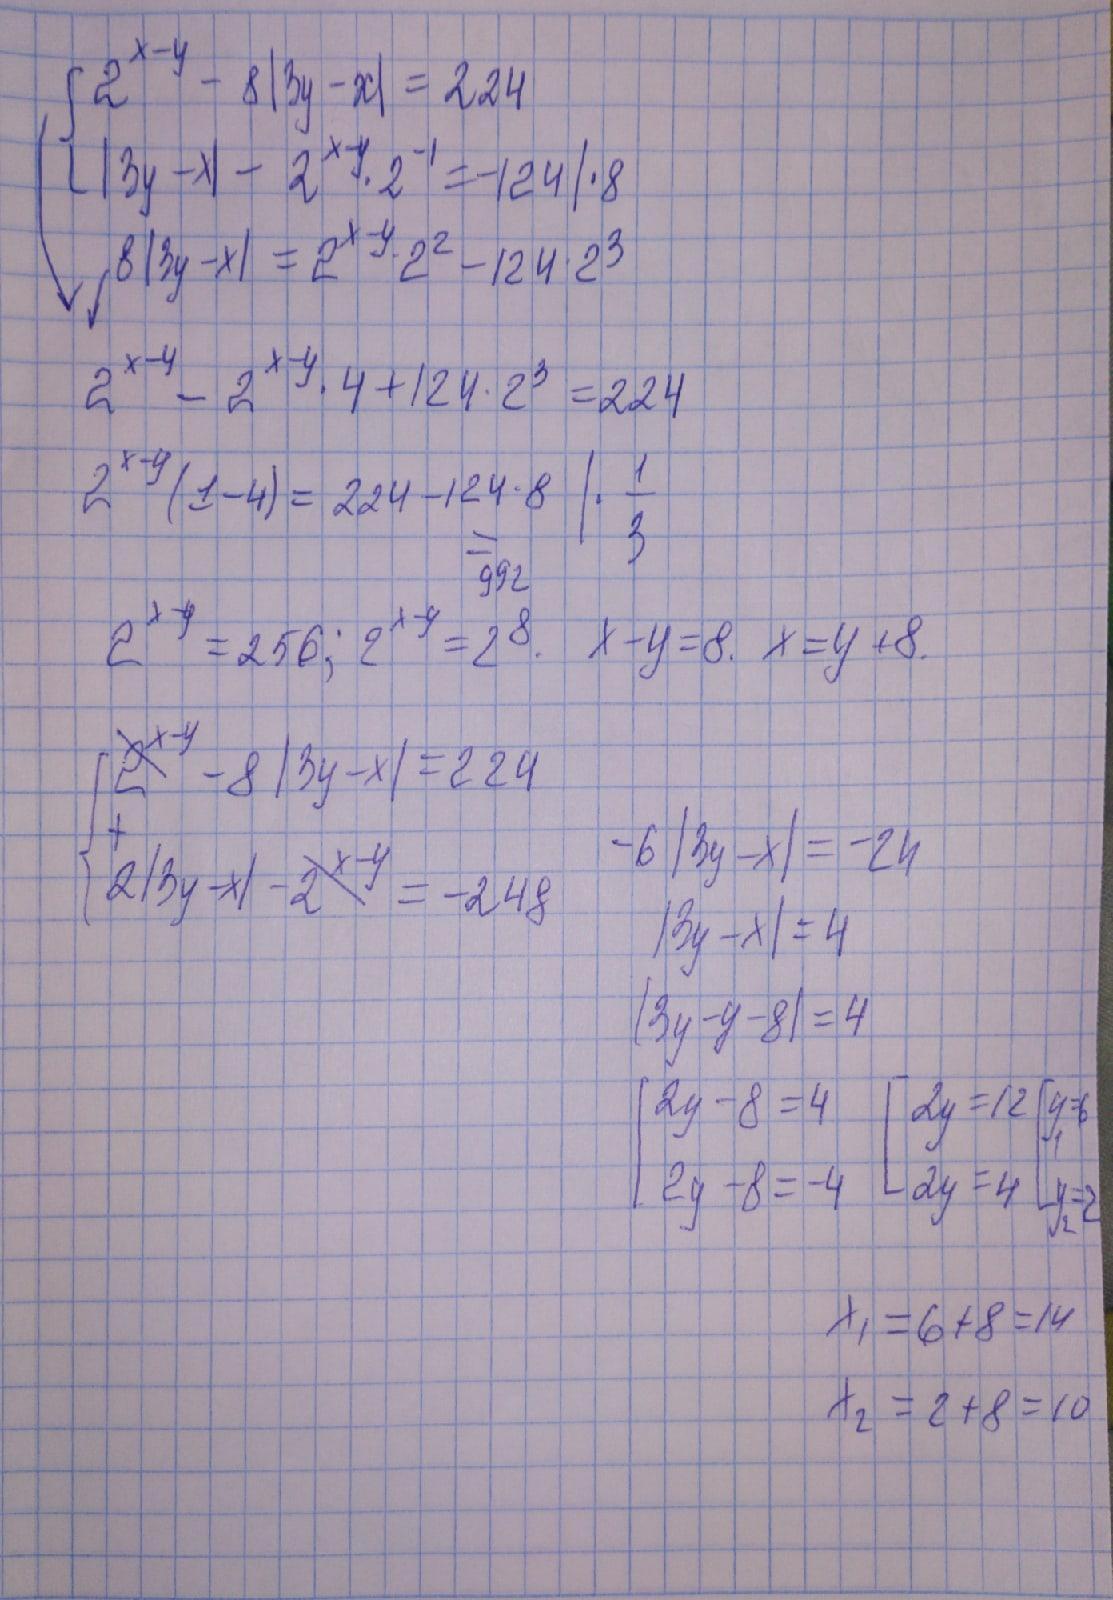 { 2^{x-y} - 8|3y-x| = 224
|3y-x| - 2^{x-y}·2^{-1} = -124 |·8
8|3y-x| = 2^{x-y}·2^2 - 124·2^3
2^{x-y} - 2^{x-y}·4 + 124·2^3 = 224
2^{x-y}(1-4) = 224 - 124·8 |· 1/3
= 992
2^{x-y} = 256; 2^{x-y} = 2^8. x-y=8. x=y+8.
{ 2^{x-y} - 8|3y-x| = 224
+
2|3y-x| - 2^{x-y} = -248
-6|3y-x| = -24
|3y-x| = 4
|3y-y-8| = 4
[ 2y-8=4 [ 2y=12 [ y_1=6
2y-8=-4 2y=4 y_2=2
x_1 = 6+8 = 14
x_2 = 2+8 = 10